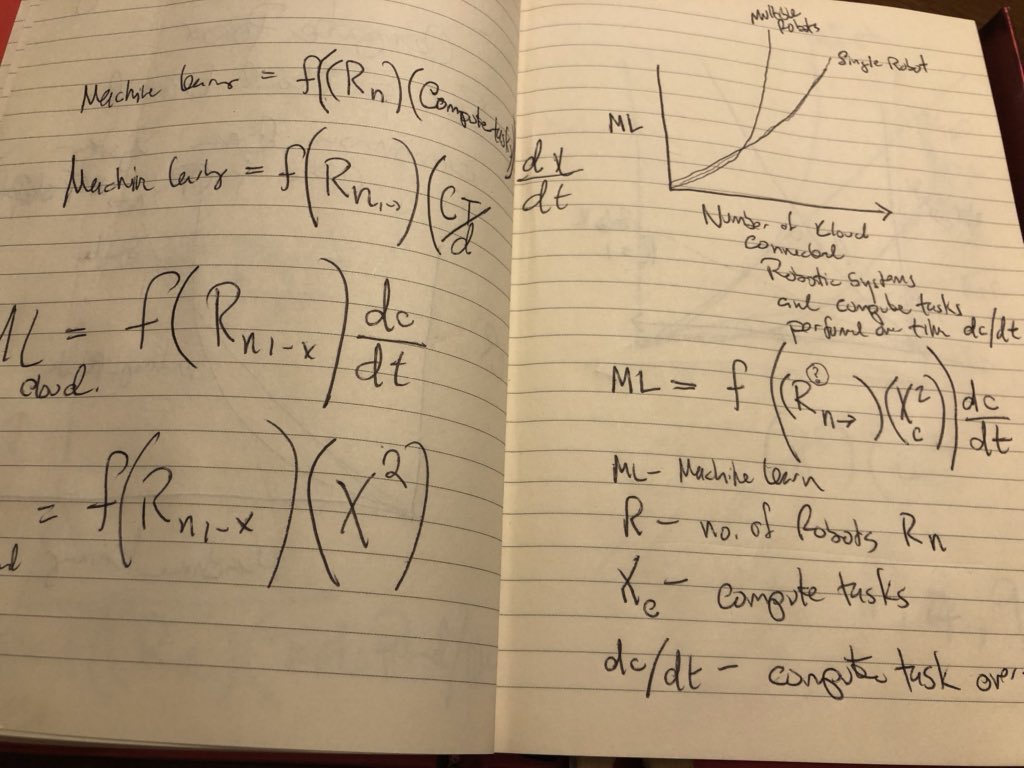 Machine learning = f((Rn)(Compute tasks)
Machin learng = f(Rn1→)(CT/d) dx/dt
ML cloud. = f(Rn1-x) dc/dt
= f(Rn1-x)(X²)
Multiple Robots
Single Robot
ML
Number of Cloud
Connected
Robotic Systems
and compute tasks
performed on tim dc/dt
ML = f((R②n→)(X²c)) dc/dt
ML - Machine learn
R - no. of Robots Rn
Xc - compute tasks
dc/dt - compute task over